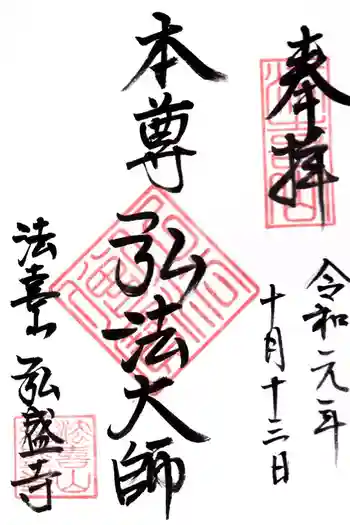 奉拝
令和元年
十月十三日
本尊
弘法大師
法喜山 弘盛寺